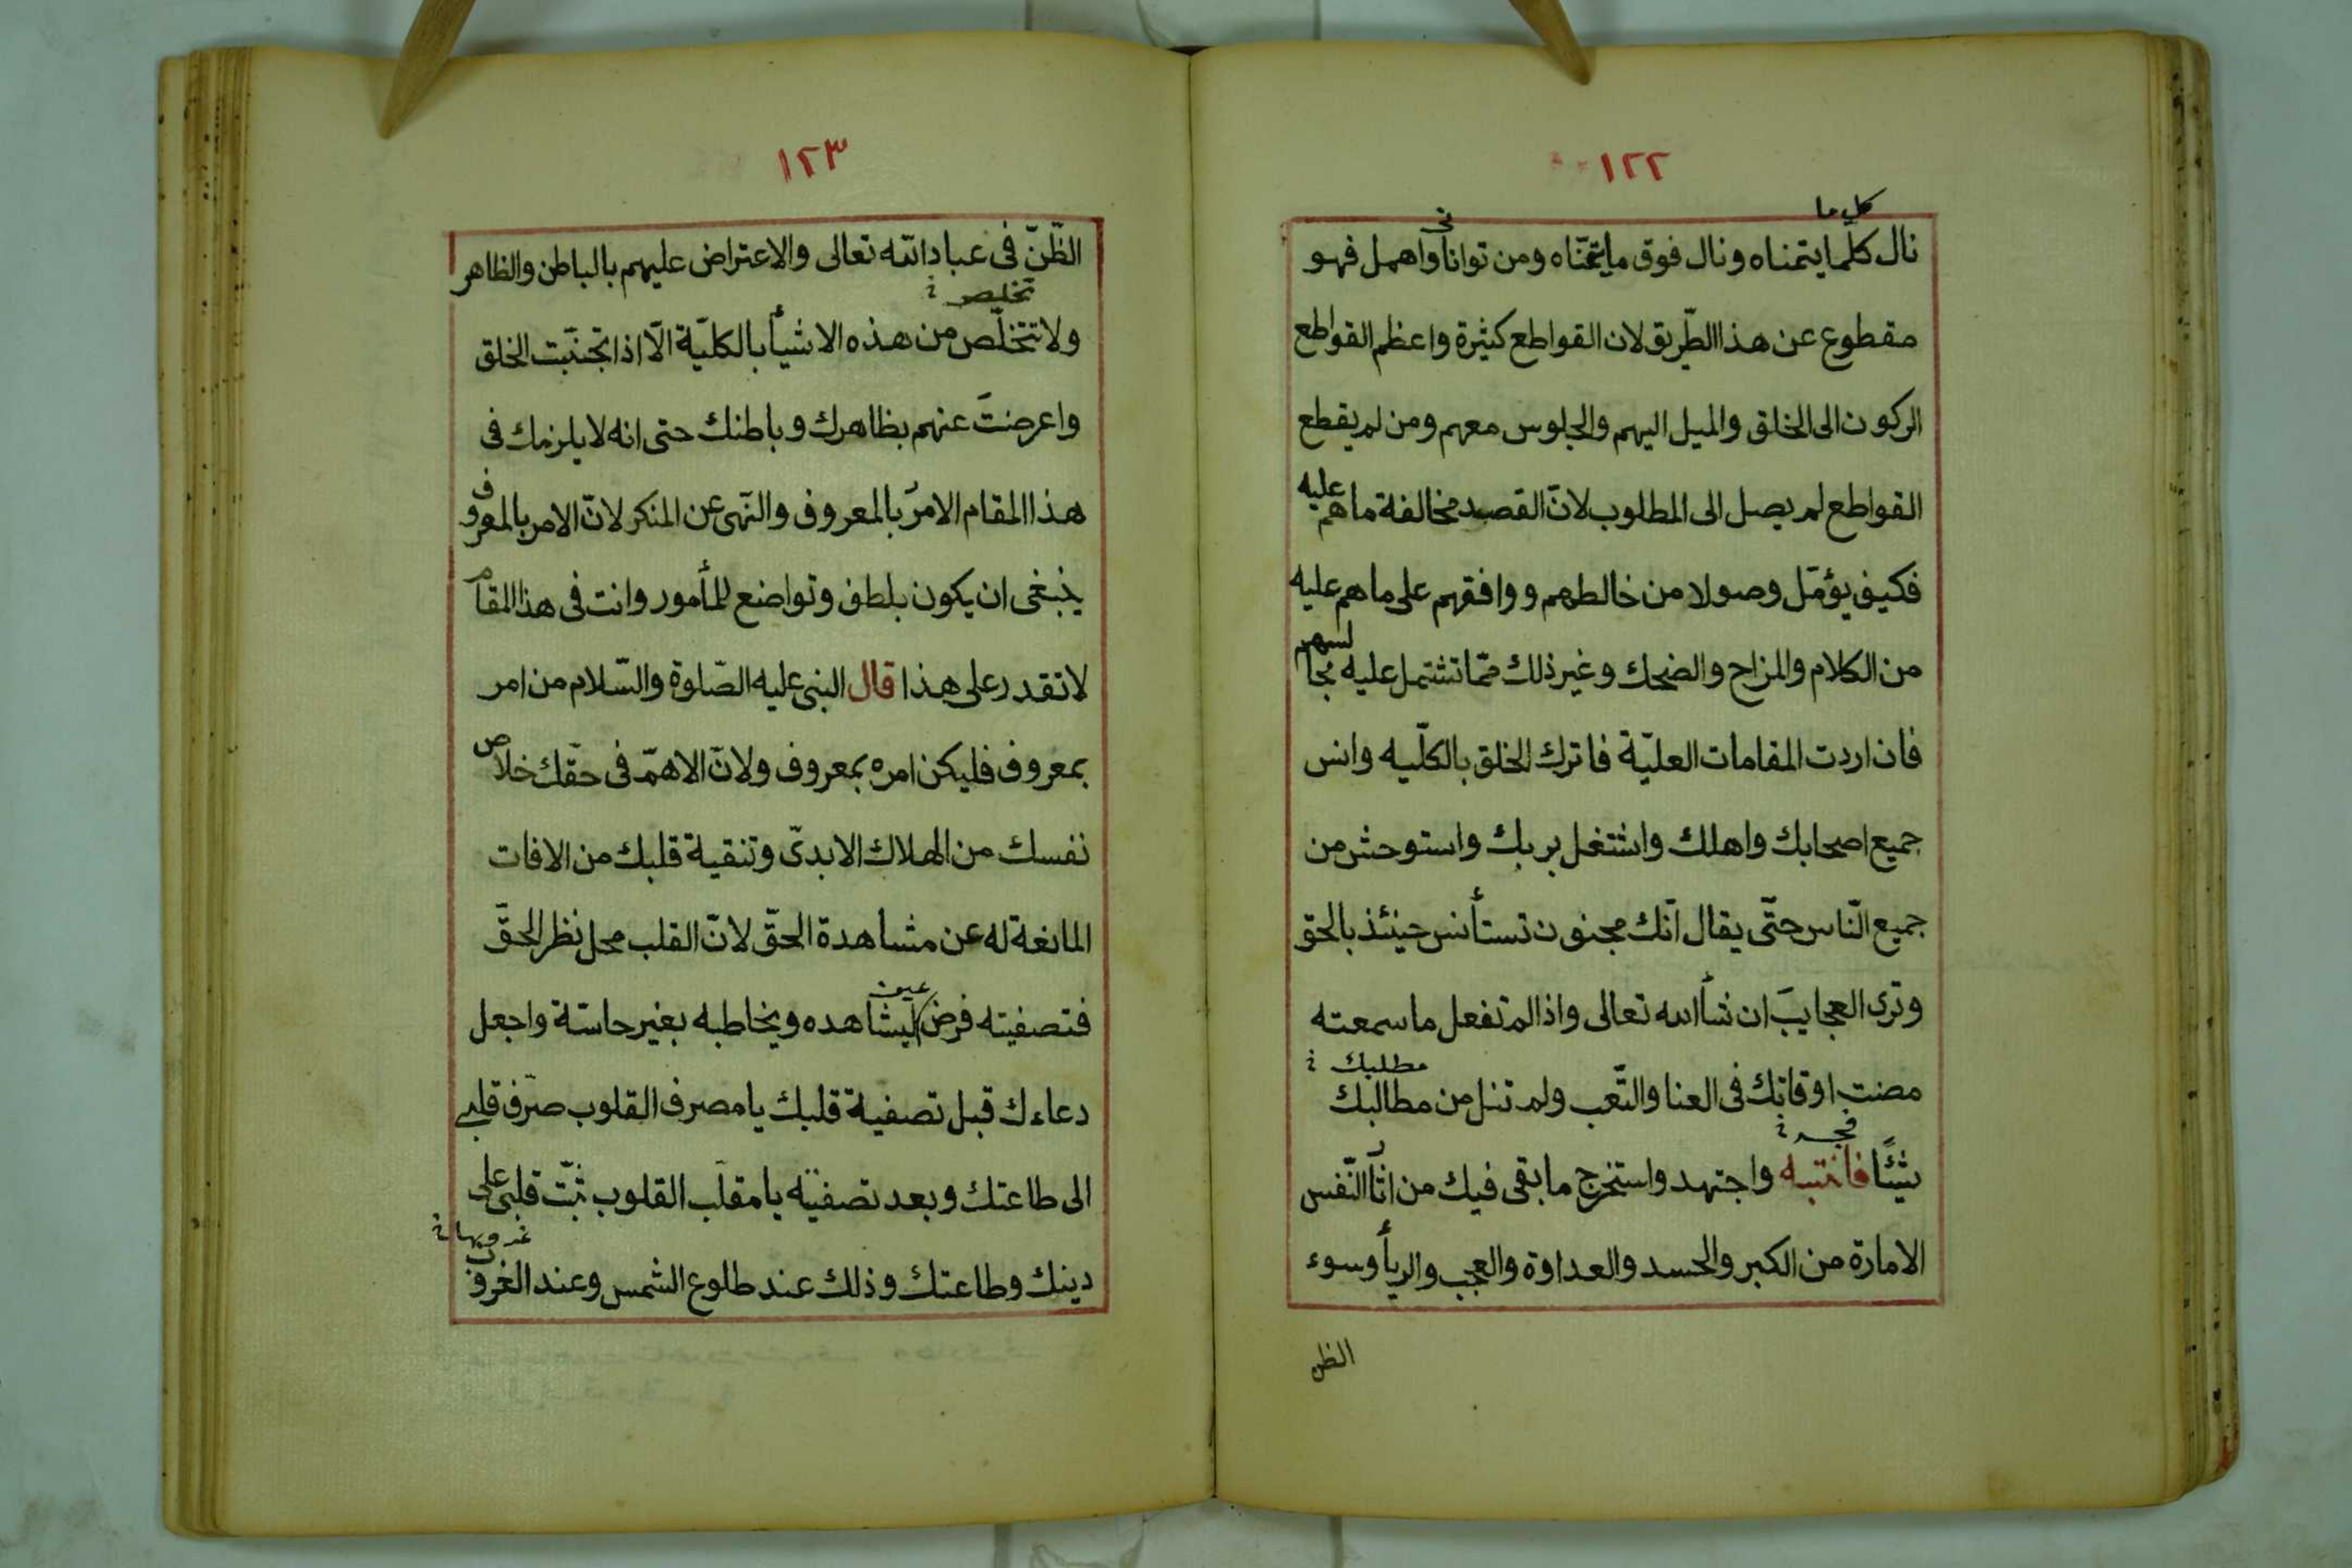 ١٢٢
كل ما
نال كلّما يتمناه ونال فوق ما يتمنّاه ومن توانا واهمل فهو
مقطوع عن هذا الطّريق لان القواطع كثيرة واعظم القواطع
الركون الى الخلق والميل اليهم والجلوس معهم ومن لم يقطع
القواطع لم يصل الى المطلوب لانّ القصد مخالفة ما هم عليه
فكيف يؤمّل وصولا من خالطهم ووافقهم على ما هم عليه
من الكلام والمزاح والضحك وغير ذلك ممّا تشتمل عليه مجالسهم
فان اردت المقامات العليّة فاترك الخلق بالكلّيه وانس
جميع اصحابك واهلك واشتغل بربك واستوحش من
جميع النّاس حتّى يقال انّك مجنون تستأنس حينئذ بالحق
وترى العجايبَ ان شأ الله تعالى واذا لم تفعل ما سمعته
مطلبك
مضت اوقاتك فى العنا والتّعب ولم تنل من مطالبك
شيئًا فانتبه واجتهد واستخرج ما بقى فيك من انّا النّفس
الامارة من الكبر والحسد والعداوة والعجب والريأ وسوء
الظن
١٢٣
الظّنّ فى عباد الله تعالى والاعتراض عليهم بالباطن والظاهر
تخليص
ولا تتخلّص من هذه الاشيأ بالكليّة الّا اذا تجنّبت الخلق
واعرضتَ عنهم بظاهرك وباطنك حتى انه لا يلزمك فى
هذا المقام الامرُ بالمعروف والنّهى عن المنكر لانّ الامر بالمعروف
ينبغى ان يكون بلطف وتواضع للمأمور وانت فى هذا المقام
لا تقدر على هذا قال النبى عليه الصّلوة والسّلام من امر
بمعروف فليكن امره بمعروف ولانّ الاهمّ فى حقّك خلاص
نفسك من الهلاك الابدىّ وتنقية قلبك من الافات
المانعة له عن مشاهدة الحقّ لانّ القلب محل نظر الحقّ
عين
فتصفيته فرض ليشاهده ويخاطبه بغير حاسّة واجعل
دعاءك قبل تصفية قلبك يا مصرف القلوب صرّف قلبى
الى طاعتك وبعد تصفيته يا مقلّب القلوب ثبّت قلبى على
غروبها
دينك وطاعتك وذلك عند طلوع الشمس وعند الغروب